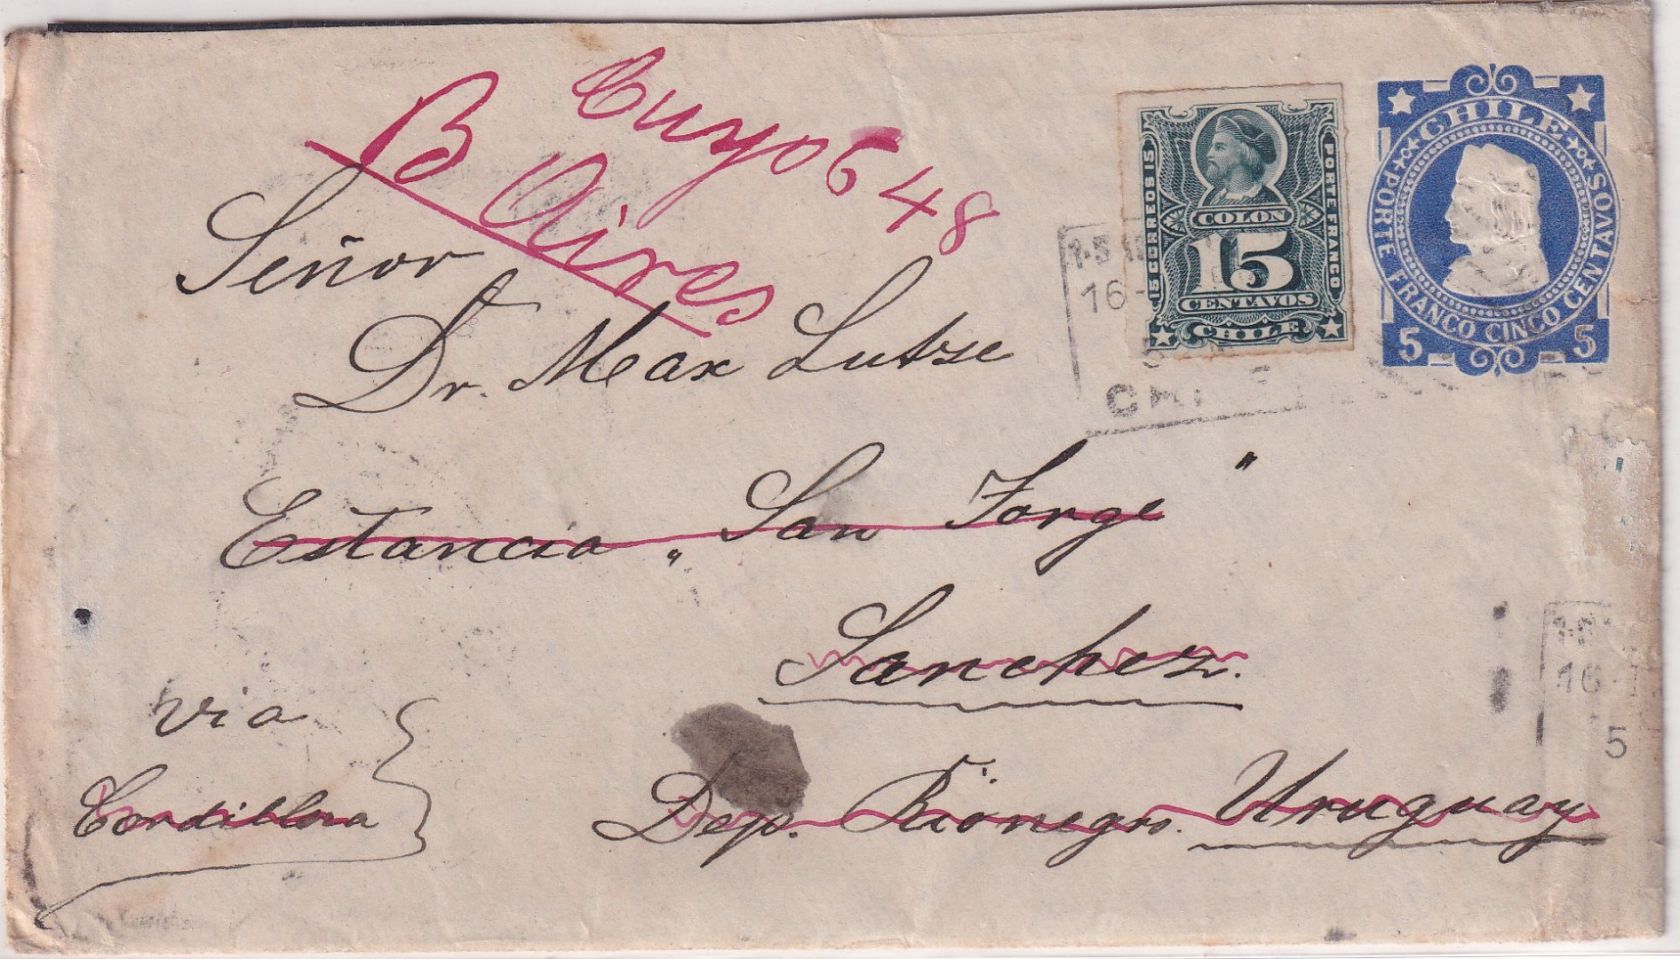 Cuyo 648
B Aires
Señor
Dr. Max Lutze
Estancia „San Jorge"
Sanchez.
via
Cordillera
Dep. Rionegro. Uruguay
15 CORREOS 15
PORTE FRANCO
COLON
15
CENTAVOS
CHILE
CHILE
PORTE FRANCO CINCO CENTAVOS
5 5
16-
5
16-
5